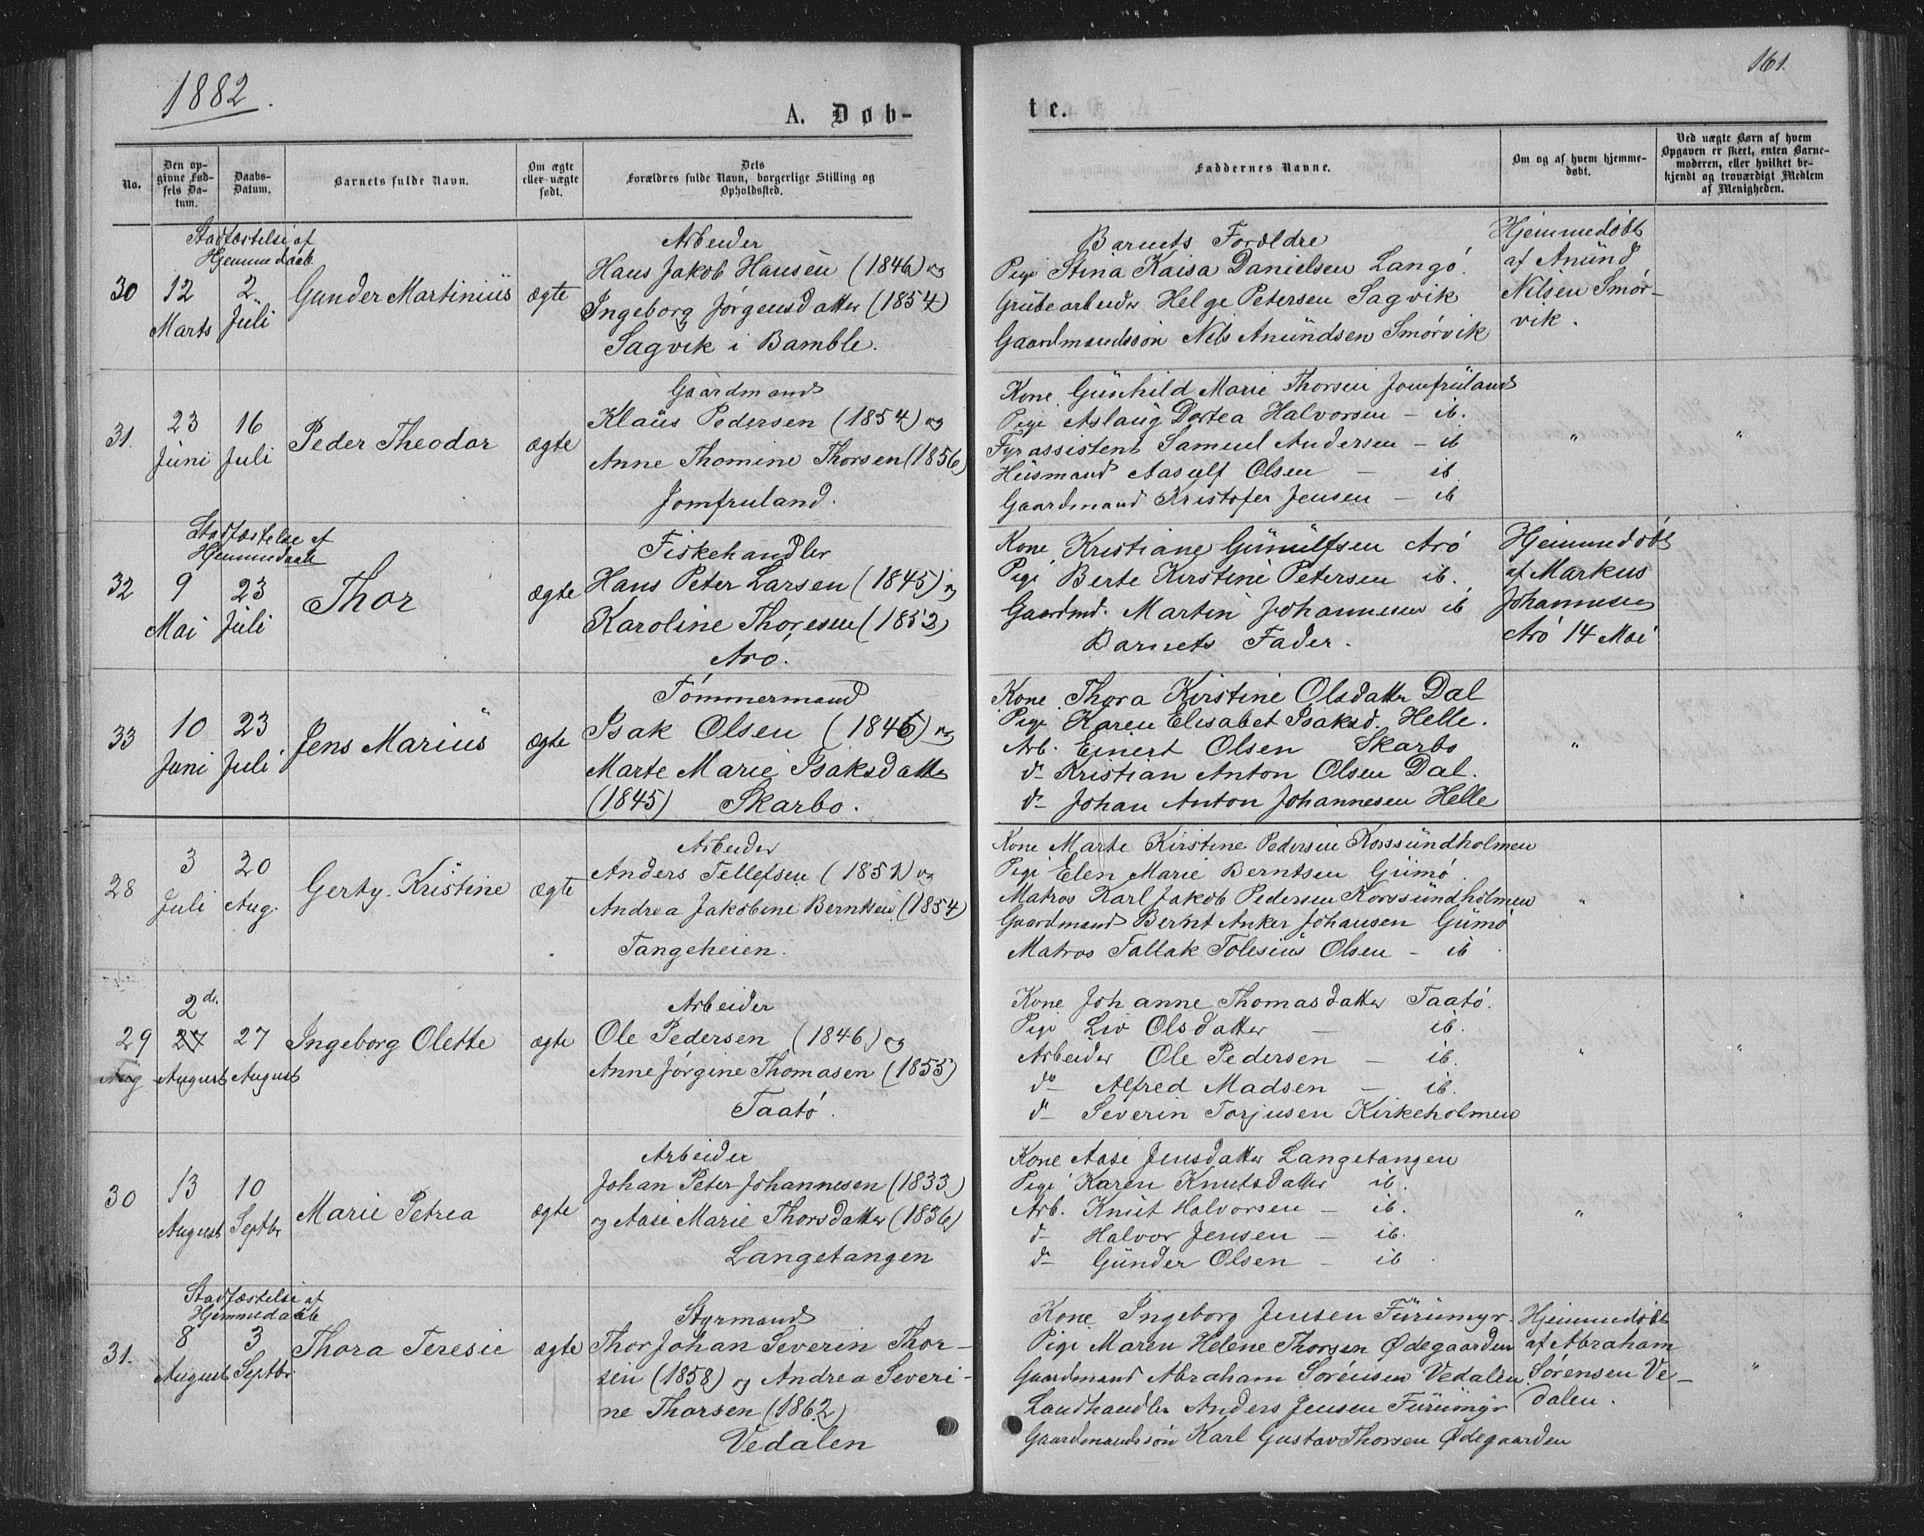 1882.
161.
A. Døb-
te.
No.
Den op-
givne Fød-
sels Da-
tum.
Daabs-
Datum.
Barnets fulde Navn.
Om ægte
eller uægte
født.
Dets
Forældres fulde Navn, borgerlige Stilling og
Opholdssted.
Faddernes Navne.
Om og af hvem hjemme-
døbt.
Ved uægte Børn af hvem
Opgaven er skeet, enten Barne-
moderen, eller hvilket be-
kjendt og troværdigt Medlem
af Menigheden.
Stadfæstelse af
Hjemmedaab
30
12
Marts
2
Juli
Gunder Martinius
ægte
Arbeider
Hans Jakob Hansen (1846) og
Ingeborg Jørgensdatter (1854)
Sagvik i Bamble.
Barnets Forældre
Pige Stina Kaisa Danielsen Langö.
Grubearbeider Helge Petersen Sagvik
Gaardmandssön Nils Anundsen Smörvik
Hjemmedöbt
af Anund
Nilsen Smör-
vik.
31.
23
Juni
16
Juli
Peder Theodor
ægte
Gaardmand
Klaus Pedersen (1854) og
Anne Thomine Thorsen (1856)
Jomfruland.
Kone Gunhild Marie Thorsen Jomfruland
Pige Aslaug Dortea Halvorsen – ib.
Fyrassistent Samuel Andersen – ib
Huusmand Aasulf Olsen – ib
Gaardmand Kristofer Jensen – ib
"
"
Stadfæstelse af
Hjemmedaab
32
9
Mai
23
Juli
Thor
ægte
Fiskehandler
Hans Peter Larsen (1845) og
Karoline Thoresen (1852)
Arö.
Kone Kristiane Gunulfsen Arö
Pige Berte Kirstine Petersen ib.
Gaardmd. Martin Johannesen ib
Barnets Fader.
Hjemmedöbt
af Markus
Johannesen
Arö 14 Mai
33
10
Juni
23
Juli
Jens Marius
ægte
Tömmermand
Isak Olsen (1846) og
Marte Marie Isaksdatter
(1845) Skarbo.
Kone Thora Kirstine Olsdatter Dal
Pige Karen Elisabet Isaksd. Helle.
Arb. Einert Olsen Skarbo
do Kristian Anton Olsen Dal.
do Johan Anton Johannesen Helle
"
28
3
Juli
20
Aug.
Gerty Kristine
ægte
Arbeider
Anders Tellefsen (1851) og
Andrea Jakobine Berntsen (1854)
Tangeheien.
Kone Marte Kirstine Pedersen Korssundholmen
Pige Elen Marie Berntsen Gumö.
Matros Karl Jakob Pedersen Korssundholmen
Gaardmand Bernt Anker Johansen Gumö
Matros Tallak Tolesius Olsen – ib
"
"
29
Aug
2de
27
August
27
August
Ingeborg Olette
ægte
Arbeider
Ole Pedersen (1846) og
Anne Jörgine Thomasen (1855)
Taatö.
Kone Johanne Thomasdatter Taatö.
Pige Liv Olsdatter – ib.
Arbeider Ole Pedersen – ib.
do Alfred Madsen – ib.
do Severin Torjusen Kirkeholmen
"
"
30
13
August
10
Septbr
Marie Petrea
ægte
Arbeider
Johan Peter Johannesen (1833)
og Aase Marie Thorsdatter (1836)
Langetangen
Kone Aase Jensdatter Langetangen
Pige Karen Knutsdatter ib.
Arb. Knut Halvorsen – ib.
do Halvor Jensen – ib.
do Gunder Olsen – ib
"
"
Stadfæstelse af
Hjemmedaab
31.
8
August
3
Septbr.
Thora Teresie
ægte
Styrmand
Thor Johan Severin Thor-
sen (1858) og Andrea Severi-
ne Thorsen (1862)
Vedalen
Kone Ingeborg Jensen Furumyr
Pige Maren Helene Thorsen Ødegaarden
Gaardmand Abraham Sörensen Vedalen
Landhandler Anders Jensen Furumyr
Gaardmandssön Karl Gustav Thorsen Ødegaarden
Hjemmedöbt
af Abraham
Sörensen Ve-
dalen.
"